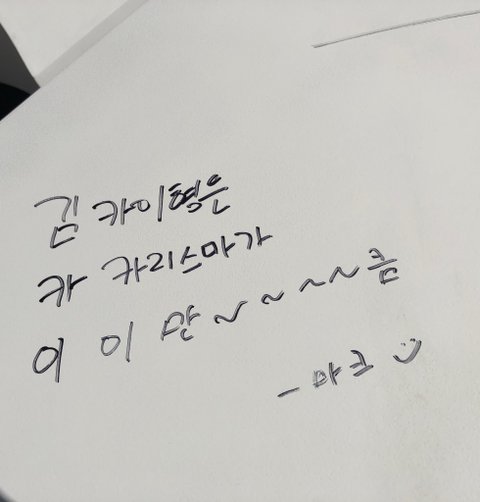 김 카이형은
카 카리스마가
이 이 만~~~~큼
- 마크